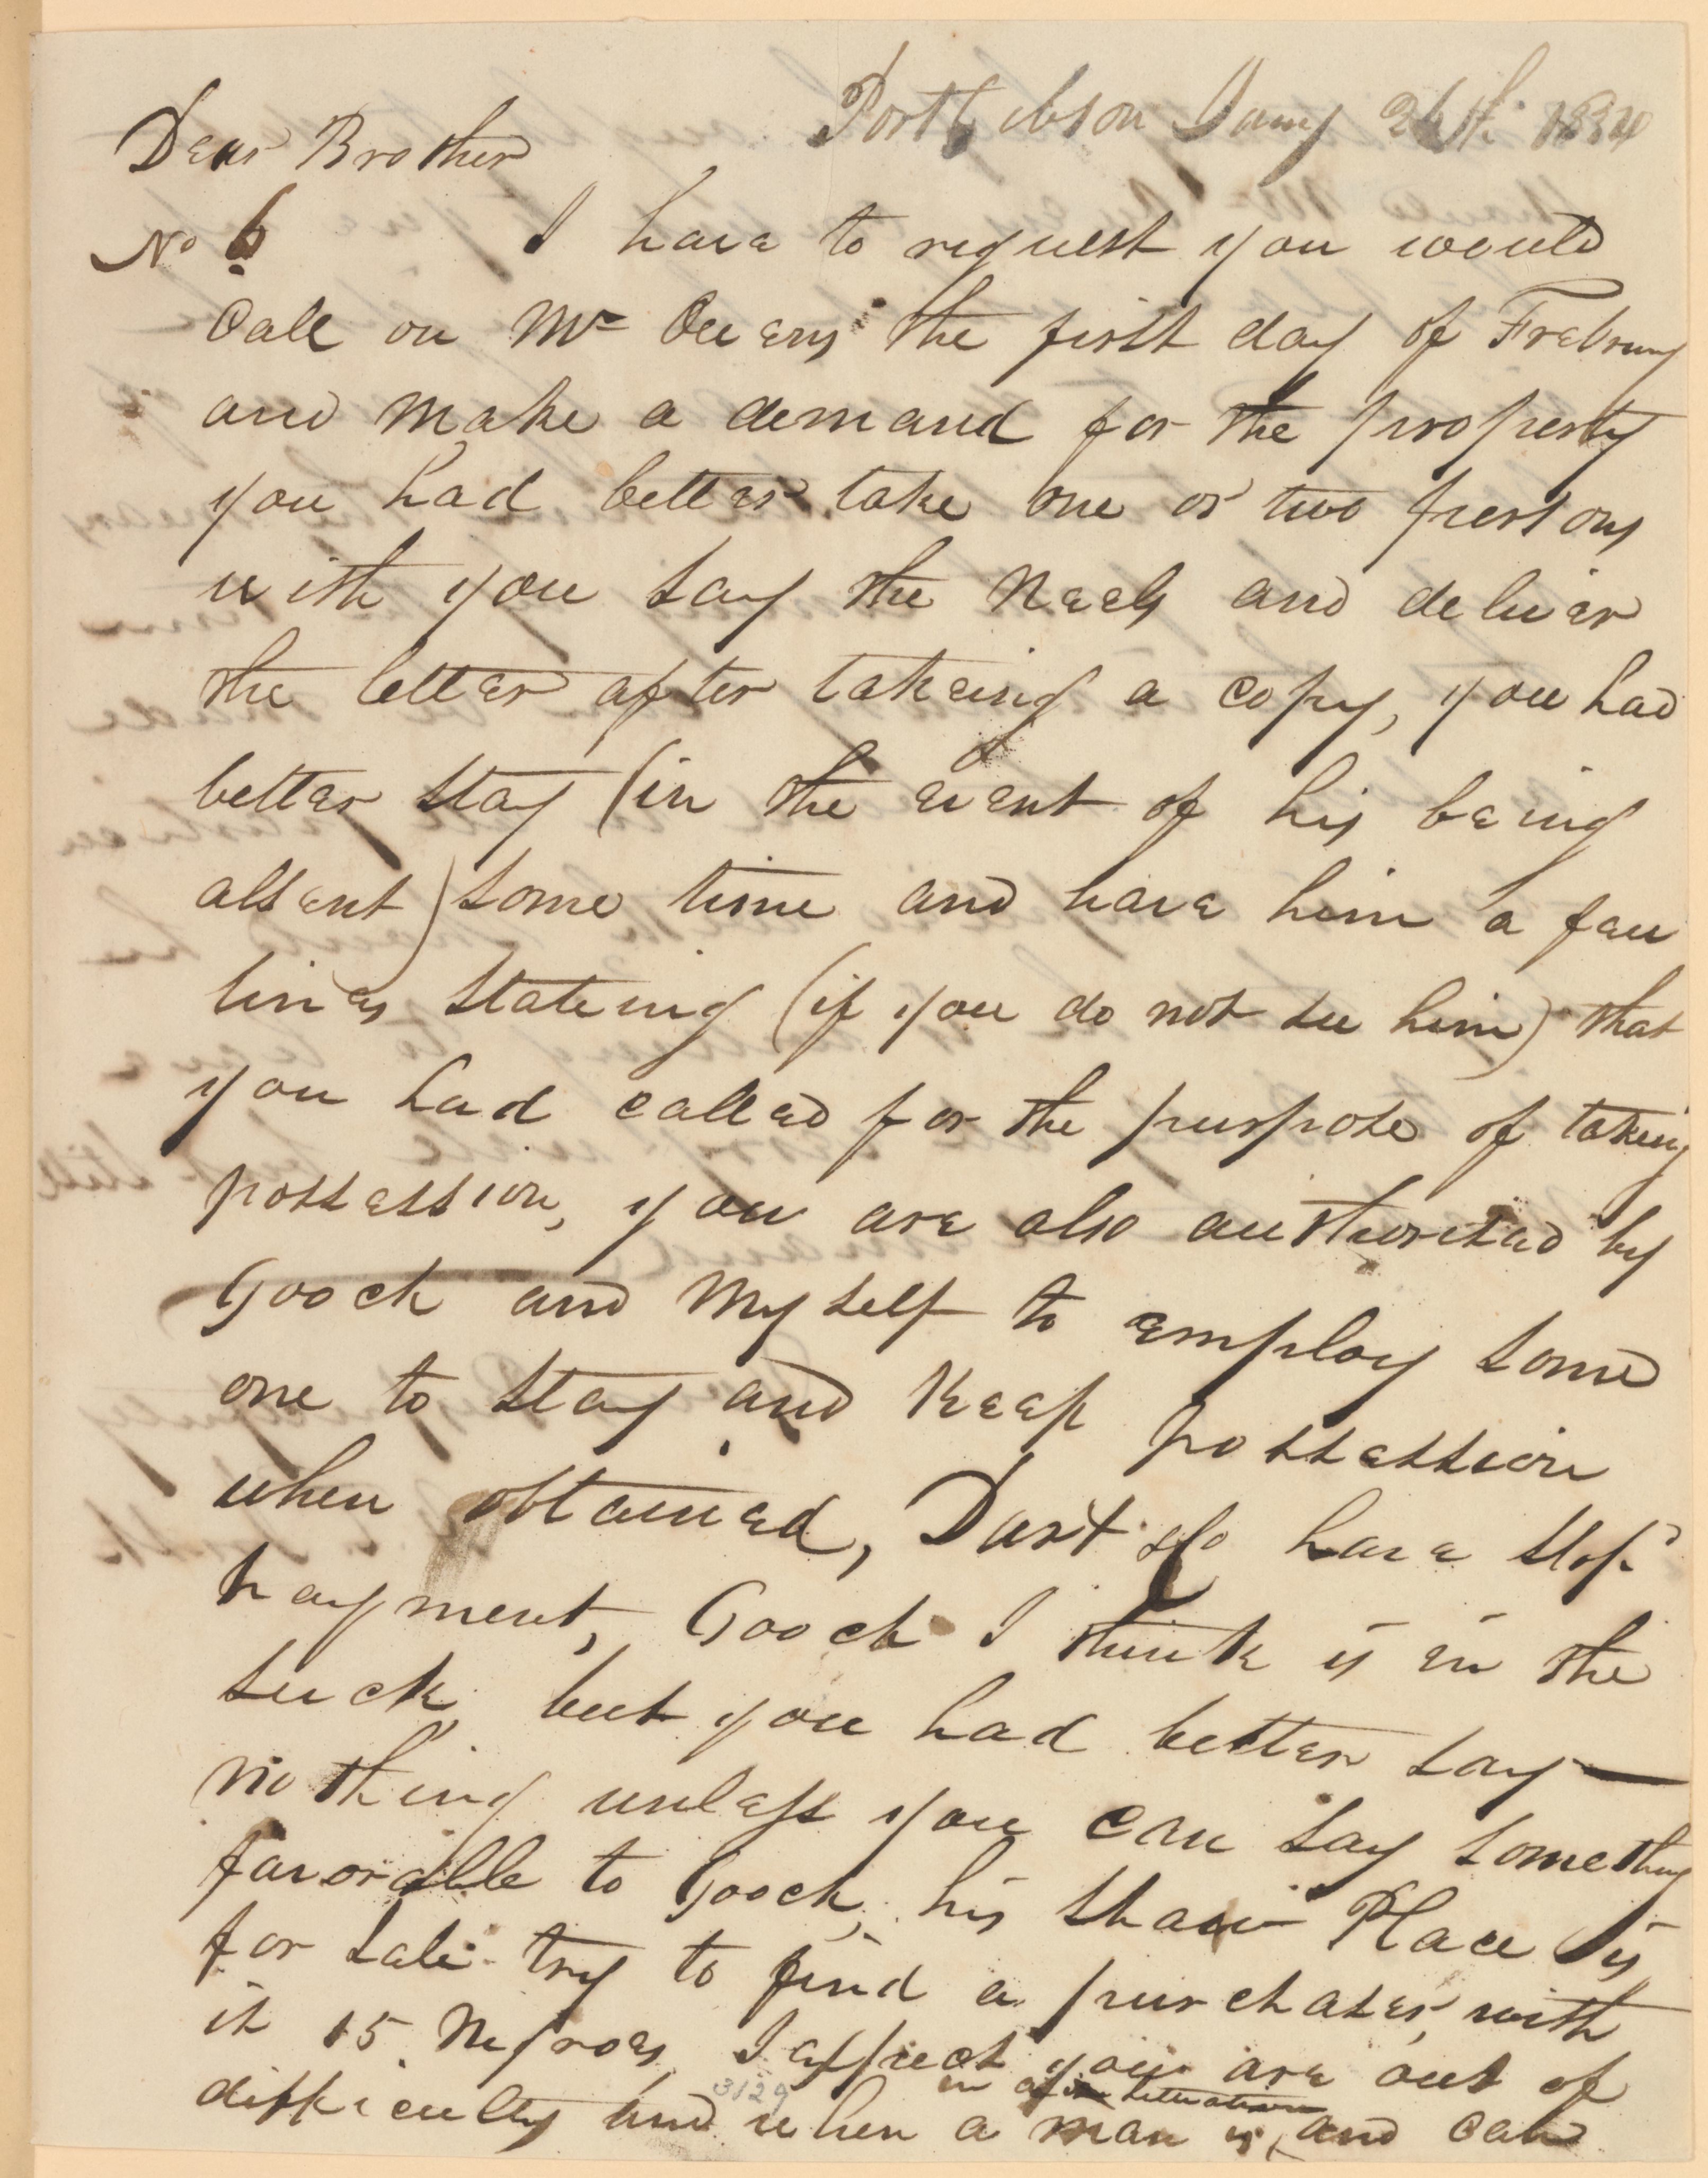 Port Gibson Jany 26th 1834
Dear Brother
No 6 I have to request you would
Call on Mr Owens the first day of Frebruay
and make a demand for the property
you had better take one or two persons
with you say the Neels and deliver
the letter after takeing a copy, you had
better stay (in the event of his being
absent) some time and have him a few
lines stateing (if you do not see him) that
you had called for the purpose of takeing
possession, you are also authorised by
Gooch and myself to employ some
one to stay and keep possession
when obtained, Dart do have stop
payment, Gooch I think is in the
suck, but you had better say —
nothing unless you can say something
favorable to Gooch, his Shaw Place is
for sale try to find a purchaser, with
it 15 Negroes, I expect you are out of
difficulty and when a man is, and can
in a situation
3129